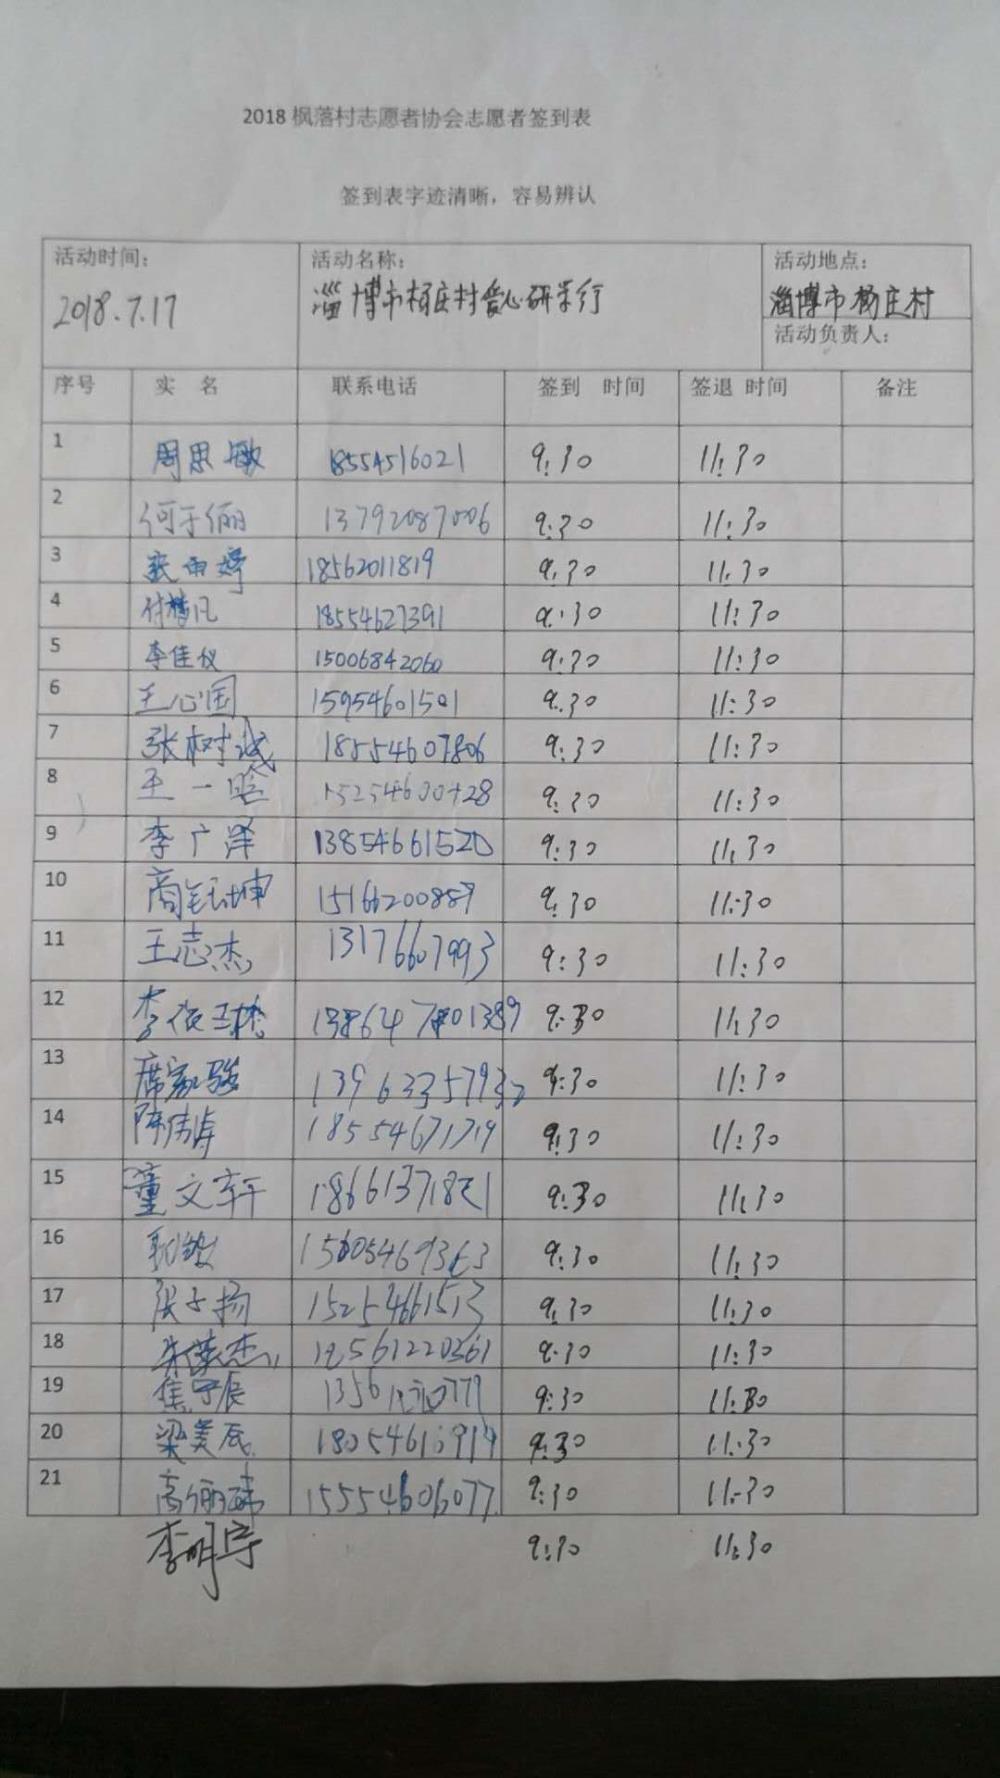 2018 枫落村志愿者协会志愿者签到表
签到表字迹清晰，容易辨认
活动时间： 活动名称： 活动地点：
2018.7.17 淄博市杨庄村爱心研学行 淄博市杨庄村
活动负责人：
序号 实 名 联系电话 签到 时间 签退 时间 备注
1 周思敏 18554516021 9:30 11:30
2 何于俪 13792087006 9:30 11:30
3 张雨婷 18562011819 9:30 11:30
4 付梦凡 18554627391 9:30 11:30
5 李佳仪 15006842060 9:30 11:30
6 王心国 15954601501 9:30 11:30
7 张树诚 18554607806 9:30 11:30
8 王一晗 9:30 11:30
9 李广泽 13854661520 9:30 11:30
10 商钰坤 15166200889 9:30 11:30
11 王志杰 13176607993 9:30 11:30
12 李 9:30 11:30
13 席家骏 9:30 11:30
14 陈伟涛 18554671719 9:30 11:30
15 董文轩 9:30 11:30
16 9:30 11:30
17 张子扬 15254661513 9:30 11:30
18 9:30 11:30
19 焦宇辰 9:30 11:30
20 梁美辰 9:30 11:30
21 高俪 15554606077 9:30 11:30
李明宇 9:30 11:30